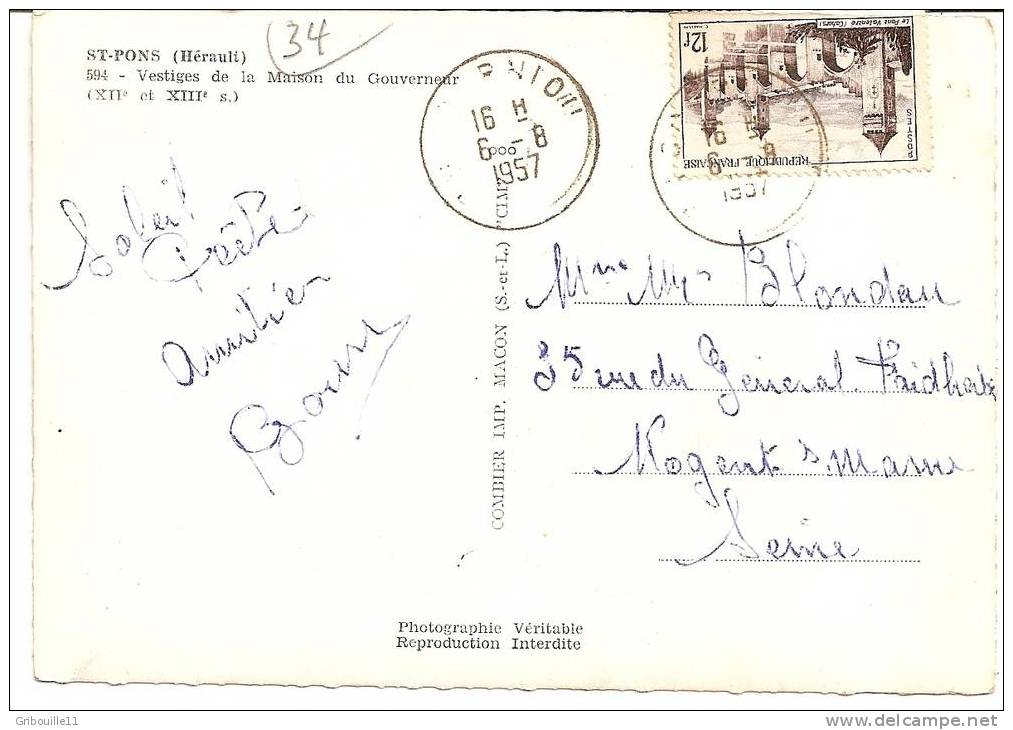 ST-PONS (Hérault)
594 - Vestiges de la Maison du Gouverneur
(XIIe et XIIIe s.)
34
16 H
6 - 8
1957
12f
Le Pont Valentré (Cahors)
POSTES
REPUBLIQUE FRANÇAISE
16 H
6 - 8
1957
Soleil
Amitiés
COMBIER IMP. MACON (S.-et-L.) "CIM"
Mme Mrs Blondau
35 rue du General Faidherbe
Nogent s Marne
Seine
Photographie Véritable
Reproduction Interdite
Gribouille11
www.delcampe.net